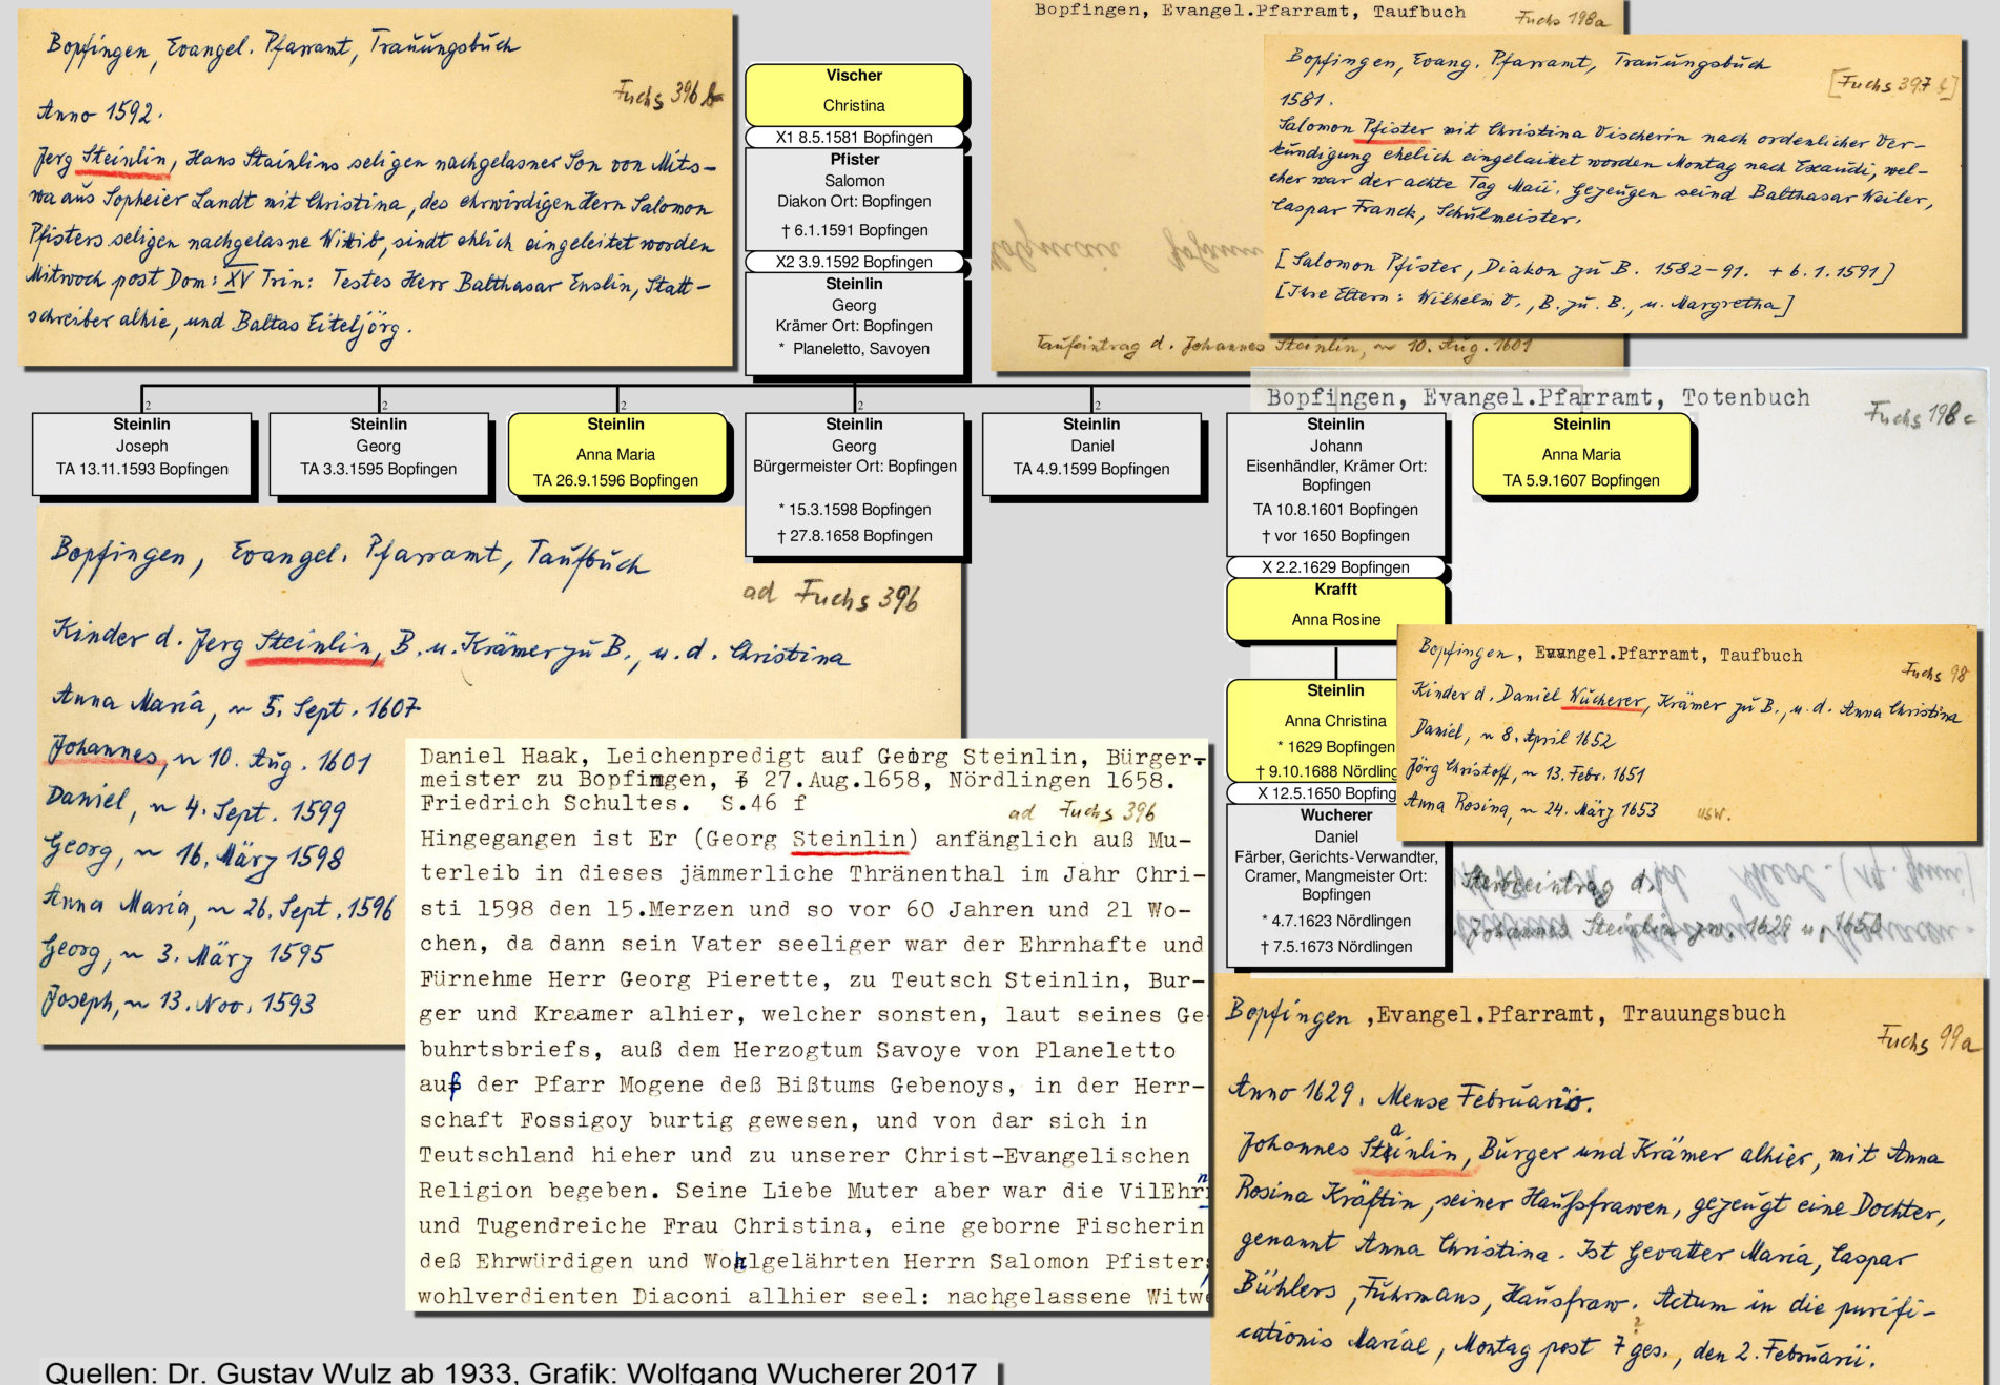 Bopfingen, Evangel. Pfarramt, Trauungsbuch
Fuchs 396 b
Anno 1592.
Jerg Steinlin, Hans Stainlins seligen nachgelasner Son von Mits-
wa aus Sopheier Landt mit Christina, des ehrwirdigen Hern Salomon
Pfisters seligen nachgelasne Wittib, sindt ehlich eingeleitet worden
Mitwoch post Dom: XV Trin: Testes Herr Balthasar Enslin, Statt-
schreiber alhie, und Baltas Eiteljörg.
Vischer
Christina
X1 8.5.1581 Bopfingen
Pfister
Salomon
Diakon Ort: Bopfingen
† 6.1.1591 Bopfingen
X2 3.9.1592 Bopfingen
Steinlin
Georg
Krämer Ort: Bopfingen
* Planeletto, Savoyen
Bopfingen, Evangel.Pfarramt, Taufbuch
Fuchs 198a
Taufeintrag d. Johannes Steinlin, ~ 10. Aug. 1601
Bopfingen, Evang. Pfarramt, Trauungsbuch
[Fuchs 397 b]
1581.
Salomon Pfister mit Christina Vischerin nach ordenlicher Ver-
kündigung ehelich eingelaittet worden Montag nach Exaudi, wel-
cher war der achte Tag Maii. Gezeugen seind Balthasar Weiler,
Caspar Franck, Schulmeister.
[Salomon Pfister, Diakon zu B. 1582-91. + 6.1.1591]
[Ihre Eltern: Wilhelm V., B. zu B., u. Margretha]
2
Steinlin
Joseph
TA 13.11.1593 Bopfingen
2
Steinlin
Georg
TA 3.3.1595 Bopfingen
2
Steinlin
Anna Maria
TA 26.9.1596 Bopfingen
2
Steinlin
Georg
Bürgermeister Ort: Bopfingen
* 15.3.1598 Bopfingen
† 27.8.1658 Bopfingen
2
Steinlin
Daniel
TA 4.9.1599 Bopfingen
Bopfingen, Evangel.Pfarramt, Totenbuch
Fuchs 198c
Steinlin
Johann
Eisenhändler, Krämer Ort:
Bopfingen
TA 10.8.1601 Bopfingen
† vor 1650 Bopfingen
X 2.2.1629 Bopfingen
Krafft
Anna Rosine
Steinlin
Anna Maria
TA 5.9.1607 Bopfingen
Steinlin
Anna Christina
* 1629 Bopfingen
† 9.10.1688 Nördling
X 12.5.1650 Bopfing
Wucherer
Daniel
Färber, Gerichts-Verwandter,
Cramer, Mangmeister Ort:
Bopfingen
* 4.7.1623 Nördlingen
† 7.5.1673 Nördlingen
Bopfingen, Evangel.Pfarramt, Taufbuch
Fuchs 98
Kinder d. Daniel Wucherer, Krämer zu B., u. d. Anna Christina
Daniel, ~ 8. April 1652
Jörg Christoff, ~ 13. Febr. 1651
Anna Rosina, ~ 24. März 1653 usw.
Sterbeeintrag d.
Johannes Steinlin zw. 1629 u. 1650
Bopfingen, Evangel. Pfarramt, Taufbuch
ad Fuchs 396
Kinder d. Jerg Steinlin, B. u. Krämer zu B., u. d. Christina
Anna Maria, ~ 5. Sept. 1607
Johannes, ~ 10. Aug. 1601
Daniel, ~ 4. Sept. 1599
Georg, ~ 16. März 1598
Anna Maria, ~ 26. Sept. 1596
Georg, ~ 3. März 1595
Joseph, ~ 13. Nov. 1593
Daniel Haak, Leichenpredigt auf Georg Steinlin, Bürger-
meister zu Bopfingen, 27.Aug.1658, Nördlingen 1658.
Friedrich Schultes. S.46 f
ad Fuchs 396
Hingegangen ist Er (Georg Steinlin) anfänglich auß Mu-
terleib in dieses jämmerliche Thränenthal im Jahr Chri-
sti 1598 den 15.Merzen und so vor 60 Jahren und 21 Wo-
chen, da dann sein Vater seeliger war der Ehrnhafte und
Fürnehme Herr Georg Pierette, zu Teutsch Steinlin, Bur-
ger und Kraamer alhier, welcher sonsten, laut seines Ge
buhrtsbriefs, auß dem Herzogtum Savoye von Planeletto
auß der Pfarr Mogene deß Bißtums Gebenoys, in der Herr-
schaft Fossigoy burtig gewesen, und von dar sich in
Teutschland hieher und zu unserer Christ-Evangelischen
Religion begeben. Seine Liebe Muter aber war die VilEhrn
und Tugendreiche Frau Christina, eine geborne Fischerin
deß Ehrwürdigen und Wohlgelährten Herrn Salomon Pfisters
wohlverdienten Diaconi allhier seel: nachgelassene Witwe
Bopfingen ,Evangel.Pfarramt, Trauungsbuch
Fuchs 99a
Anno 1629. Mense Februario.
Johannes Stainlin, Burger und Krämer alhier, mit Anna
Rosina Kräftin, seiner Haußfrawen, gezeugt eine Dochter,
genannt Anna Christina. Ist Gevatter Maria, Caspar
Bühlers, Fuhrmans, Hausfraw. Actum in die purifi-
cationis Mariae, Montag post 7 ges., den 2. Februarii.
Quellen: Dr. Gustav Wulz ab 1933, Grafik: Wolfgang Wucherer 2017